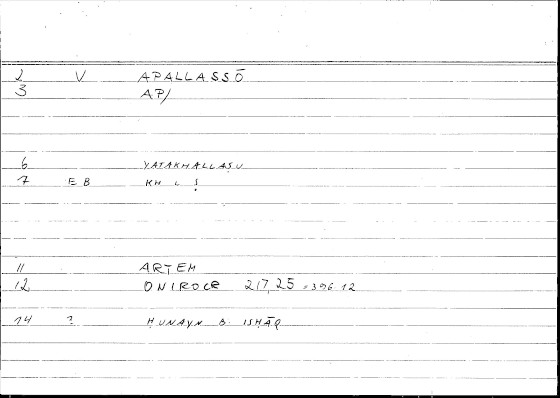 2 V APALLASSŌ
3 AP/
6 YATAKHALLAṢU
7 EB KH L Ṣ
11 ARTEM
12 ONIROCR 217,25 = 396 12
14 ? ḤUNAYN B. ISḤĀQ